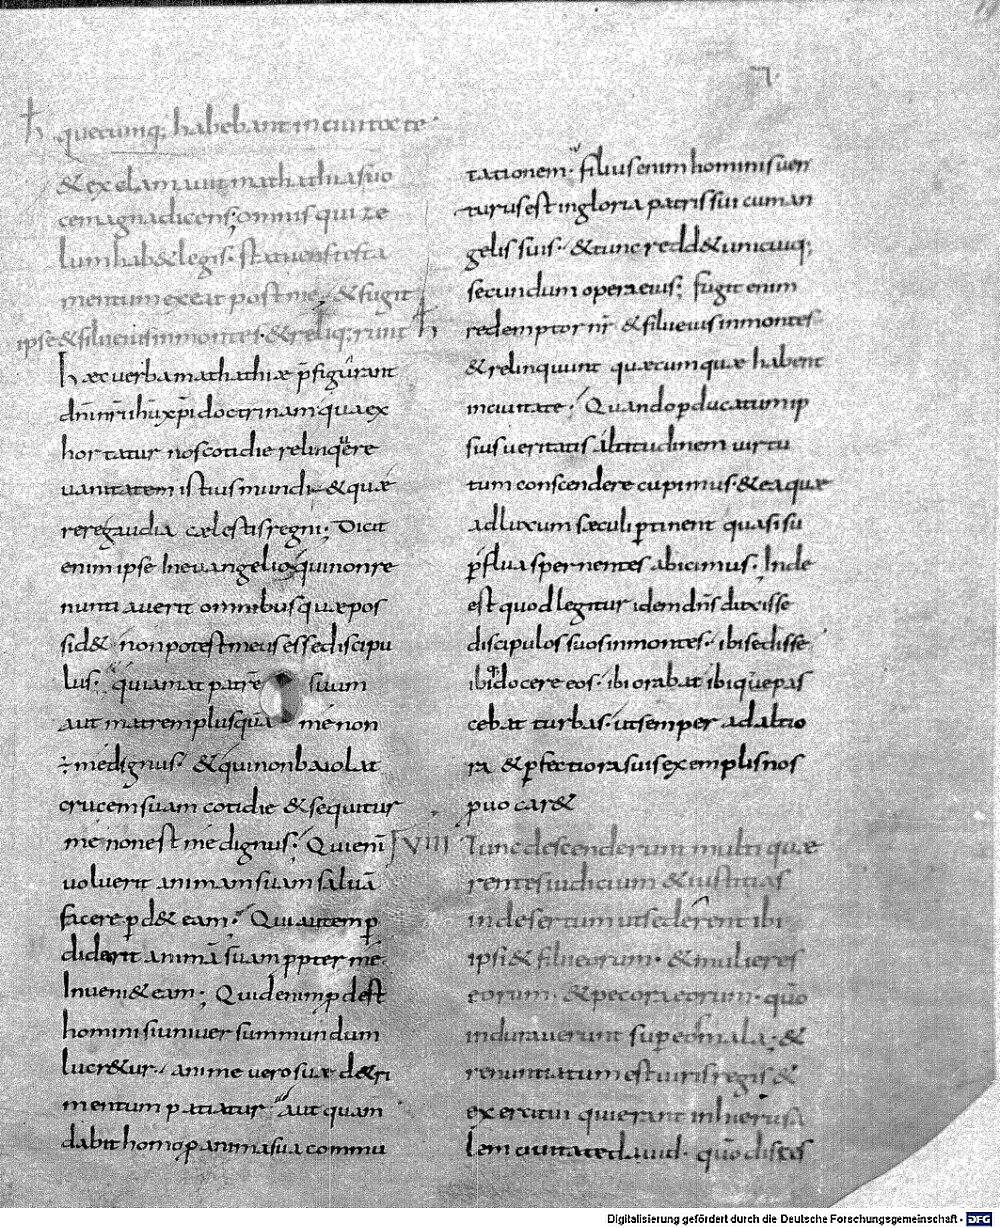 7.
ħ quecumq; habebant in ciuitate·
& exclamauit mathathias uo
ce magna dicens; omnis qui ze
lum hab& legis· statuens testa
mentum exeat post me; & fugit
ipse & filii eius in montes· & reliq;runt ħ
Hæc uerba mathathiæ p̄figurant
dn̄m nr̄m ihu xp̄i doctrinam quæ ex
hortatur nos cotidie relinquere
uanitatem istius mundi & quæ
rere gaudia cælestis regni; Dicit
enim ipse In euangelio qui non re
nuntiauerit omnibus quæ pos
sid& non potest meus esse discipu
lus; quia mat patrē suum
aut matrem plus quā me non
÷ me dignus; & qui non baiolat
crucem suam cotidie & sequitur
me non est me dignus; Qui eni
uoluerit animam suam saluā
facere p̱d& eam; Qui autem p̱
diderit animā suam ppter me
Inueni& eam; Quid enim p̱dest
homini si uniuersum mundum
lucr&ur· animę uero suæ d&ri
mentum patiatur; aut quam
dabit homo p̱ anima sua commu
tationem· filius enim hominis uen
turus est in gloria patris sui cum an
gelis suis· & tunc redd& unicuiq;
secundum opera eius; fugit enim
redemptor nr̄ & filii eius in montes
& relinquunt quæcumquæ habent
in ciuitate; Quando p̱ducatum ip
sius ueritatis altitudinem uirtu
tum conscendere cupimus· & ea quæ
ad luxum sæculi p̱tinent quasi su
p̱flua spernentes abicimus; Inde
est quod legitur idem dn̄s duxisse
discipulos suos in montes· ibi sedisse
ibiq; docere eos· ibi orabat ibi quę pas
cebat turbas· ut semper ad altio
ra & p̱fectiora suis exemplis nos
puocar&
VIII Tunc descenderunt multi quæ
rentes iudicium & iustitias
in desertum ut sederent ibi
ipsi & filii eorum· & mulieres
eorum· & pecora eorum· quō
indurauerunt sup eos mala; &
renuntiatum est uiris regis &
exercitui qui erant in hierusa
lem ciuitate dauid· quō disces
Digitalisierung gefördert durch die Deutsche Forschungsgemeinschaft - DFG